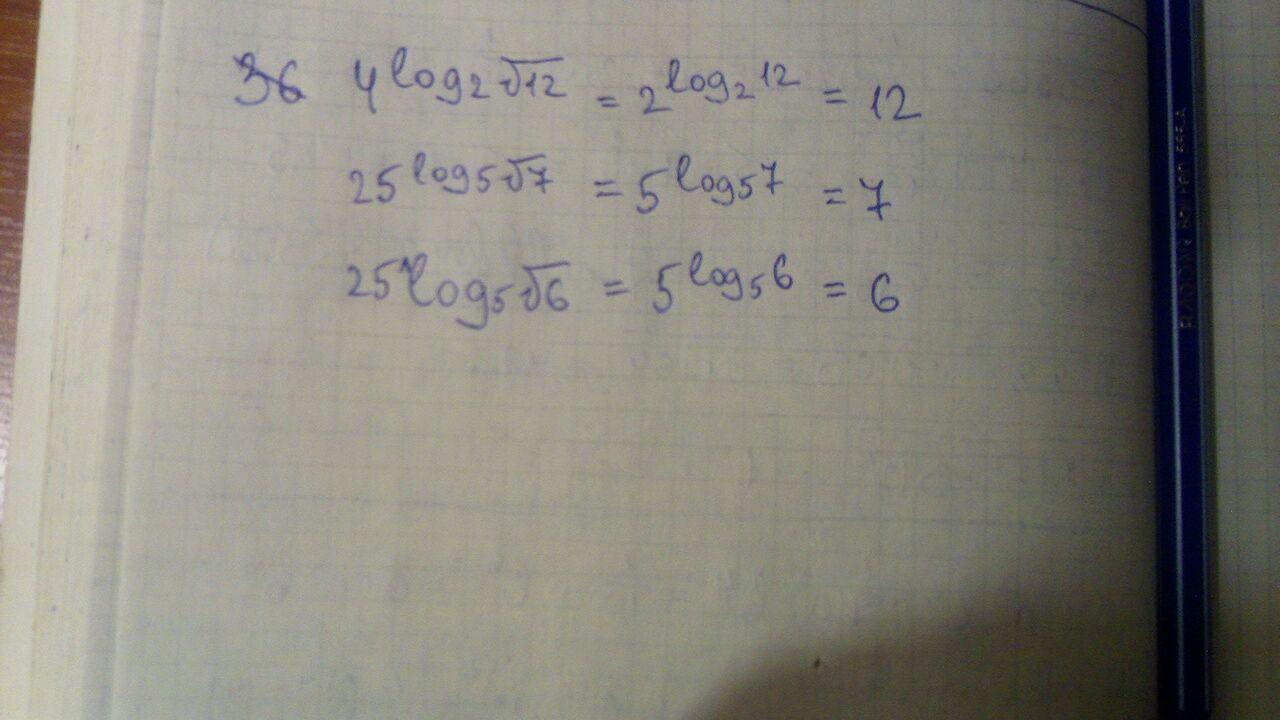 36 4^log₂√12 = 2^log₂12 = 12
25^log₅√7 = 5^log₅7 = 7
25^log₅√6 = 5^log₅6 = 6